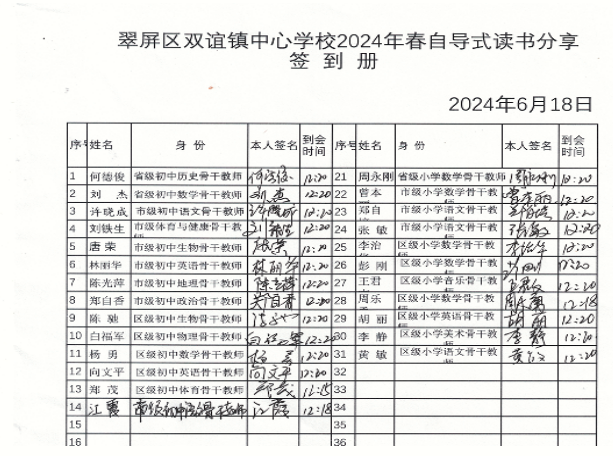 翠屏区双谊镇中心学校2024年春自导式读书分享
签 到 册
2024年6月18日
序号 姓名 身 份 本人签名 到会时间 序号 姓名 身 份 本人签名 到会时间
1 何德俊 省级初中历史骨干教师 12:20 21 周永刚 省级小学数学骨干教师 周永刚 12:20
2 刘 杰 省级初中数学骨干教师 刘杰 12:20 22 曾本 市级小学数学骨干教 12:20
3 许晓成 市级初中语文骨干教师 许晓成 12:20 23 郑自 市级小学语文骨干教 12:20
4 刘铁生 市级体育与健康骨干教 12:20 24 张 敏 市级小学语文骨干教 张敏 12:20
5 唐 荣 市级初中生物骨干教师 唐荣 12:20 25 李治 区级小学数学骨干教 12:20
6 林丽华 市级初中英语骨干教师 林丽华 12:20 26 彭 刚 区级小学数学骨干教 彭刚 12:20
7 陈光萍 市级初中地理骨干教师 陈光萍 12:20 27 王君 区级小学音乐骨干教 12:20
8 郑自香 市级初中政治骨干教师 12:20 28 周乐 区级小学数学骨干教 12:18
9 陈 驰 区级初中生物骨干教师 12:20 29 胡 丽 区级小学英语骨干教 胡丽 12:20
10 白福军 区级初中物理骨干教师 白福军 12:20 30 李 静 区级小学美术骨干教 李静 12:20
11 杨 勇 区级初中数学骨干教师 杨勇 12:20 31 黄 敏 区级小学语文骨干教 12:20
12 向文平 区级初中英语骨干教师 向文平 12:20 32
13 郑 茂 区级初中体育骨干教师 郑茂 12:15 33
14 江霞 骨干教师 江霞 12:18 34
15 35
16 36